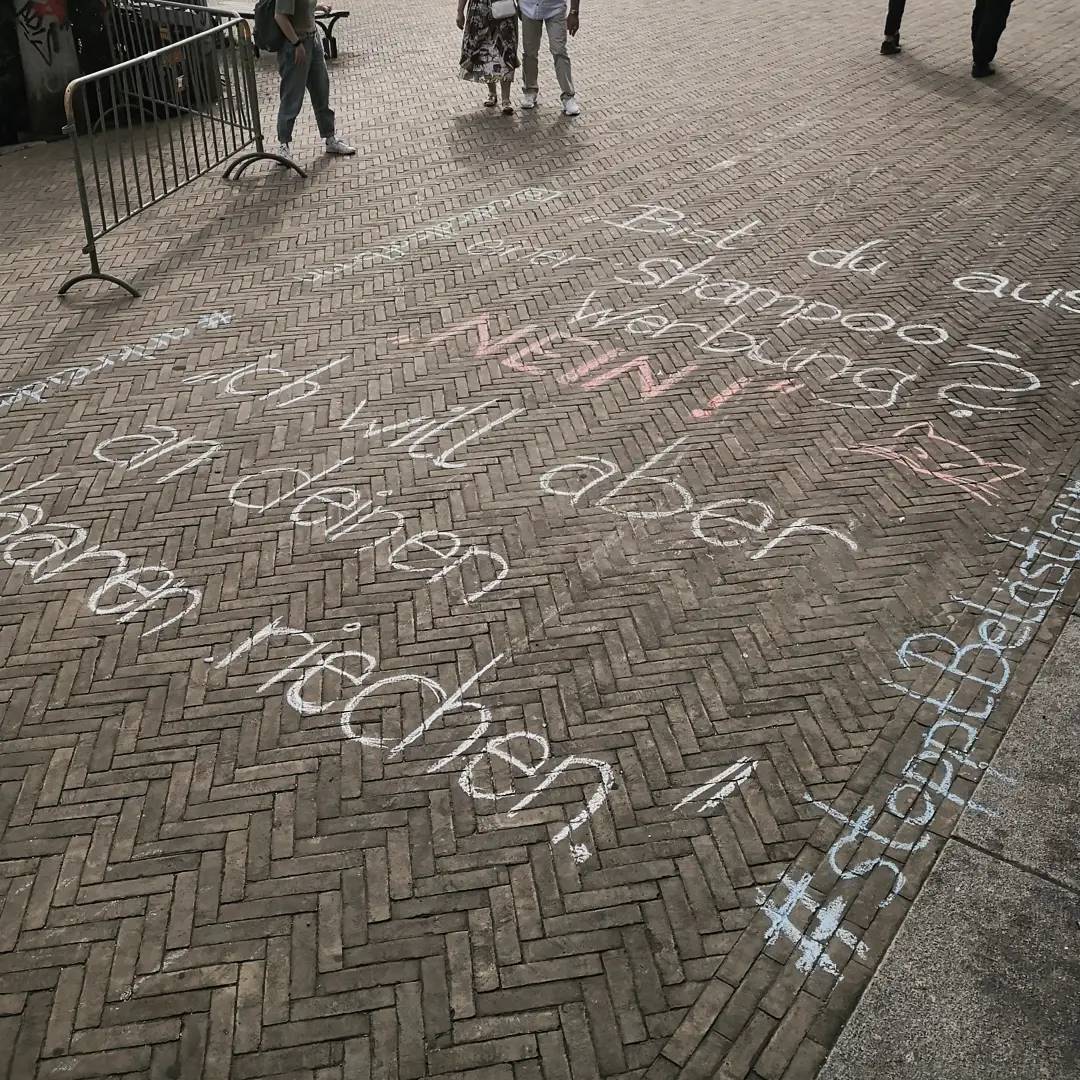 Bist du aus
einer Shampoo
Werbung?"
NEIN!
"Ich will aber
an deinen
Haaren riechen"
#StopptBelästigun